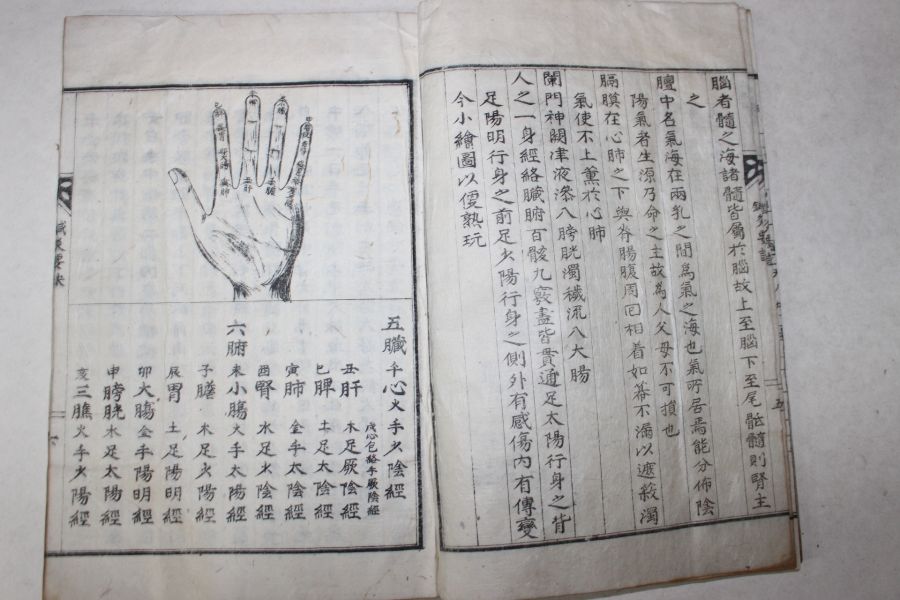 腦者髓之海諸髓皆屬於腦故上至腦下至尾骶髓則腎主
之
膻中名氣海在兩乳之間爲氣之海也氣所居焉能分佈陰
陽氣者生源乃命之主故為人父母不可損也
膈膜在心肺之下與脊腸腹周囘相着如幕不漏以遮殺濁
氣使不上薰於心肺
闌門神闕津液滲入膀胱濁穢流入大腸
人之一身經絡臟腑百骸九竅盡皆貫通足太陽行身之背
足陽明行身之前足少陽行身之側外有感傷內有傳變
今小繪圖以便熟玩
五臟
午心火手少陰經
戌心包絡手厥陰經
丑肝木足厥陰經
巳脾土足太陰經
寅肺金手太陰經
酉腎水足少陰經
六腑
未小膓火手太陽經
子膽木足少陽經
辰胃土足陽明經
卯大膓金手陽明經
申膀胱水足太陽經
亥三膲火手少陽經